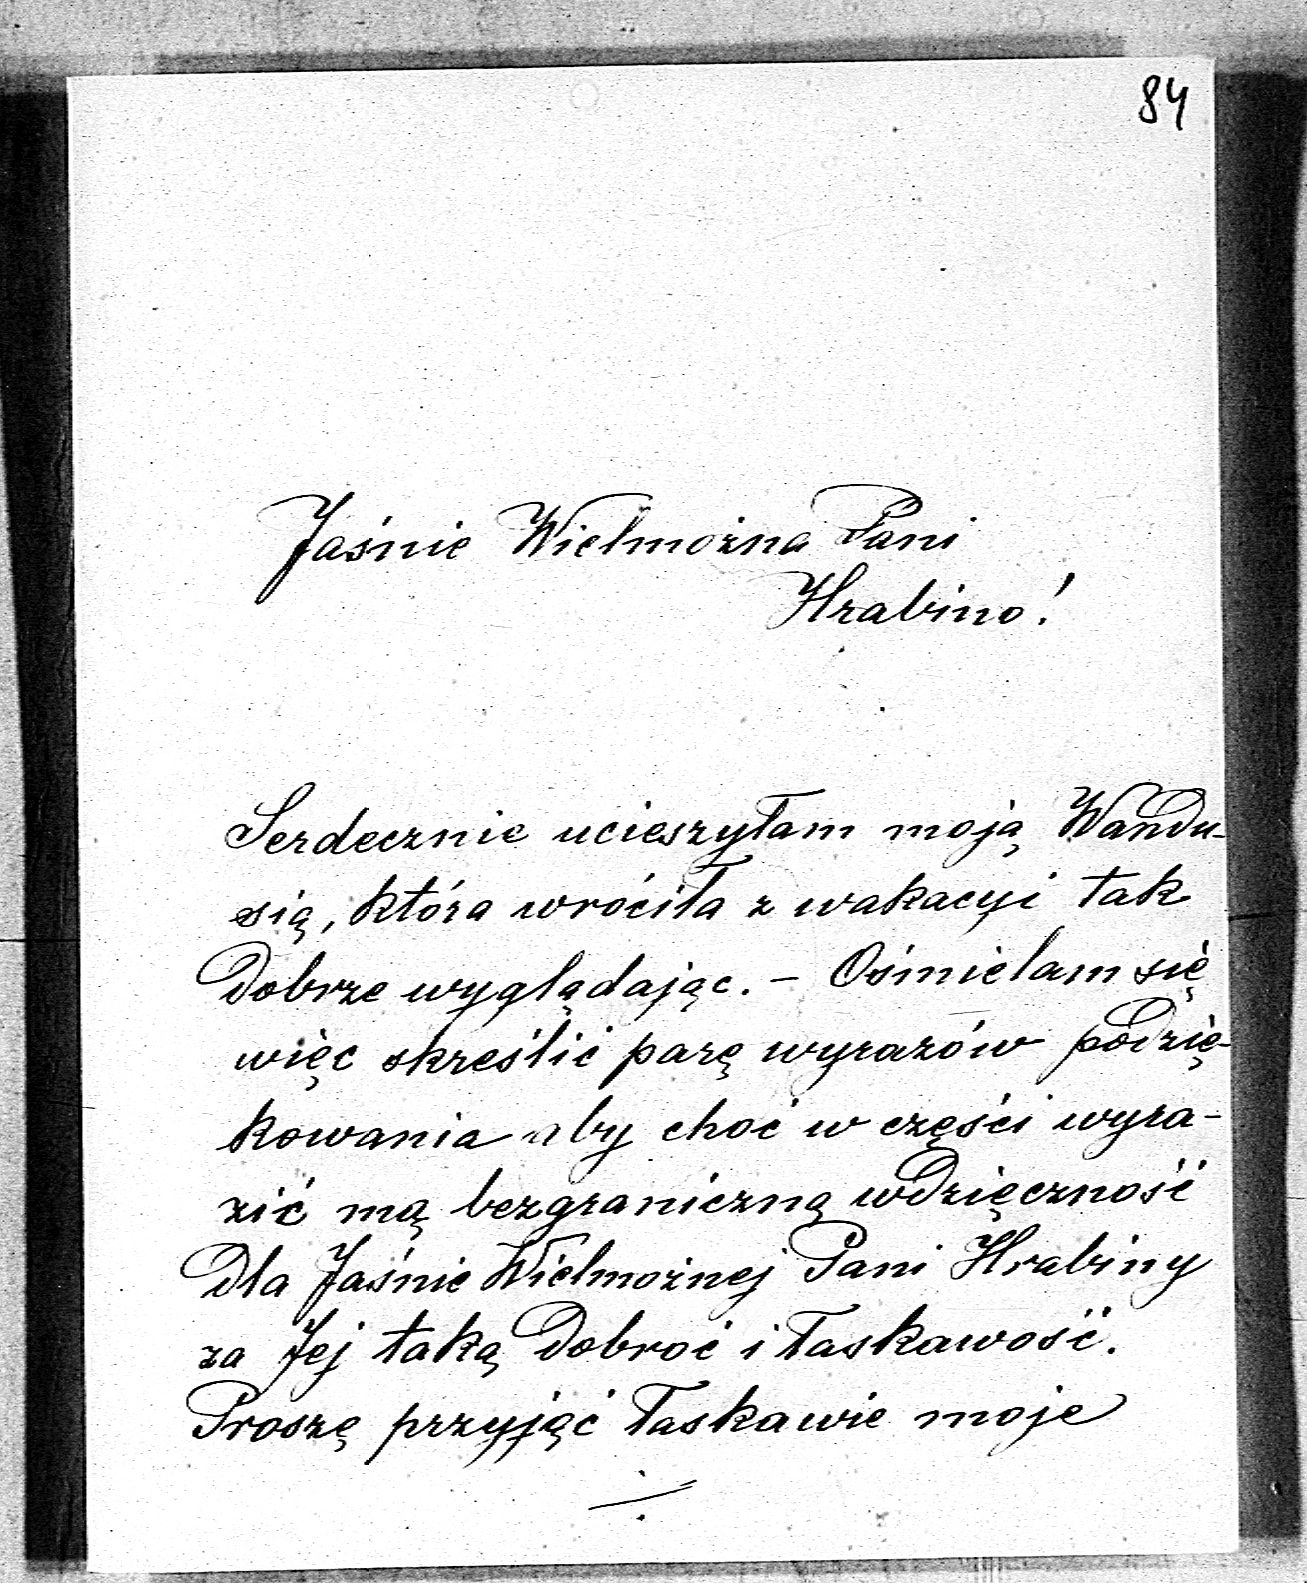 84
Jaśnie Wielmożna Pani
Hrabino!
Serdecznie ucieszyłam moją Wandu-
sią, która wróciła z wakacyi tak
dobrze wyglądając. – Ośmielam się
więc skreślić parę wyrazów podzię-
kowania aby choć w części wyra-
zić mą bezgraniczną wdzięczność
dla Jaśnie Wielmożnej Pani Hrabiny
za Jej taką dobroć i łaskawość.
Proszę przyjąć łaskawie moje